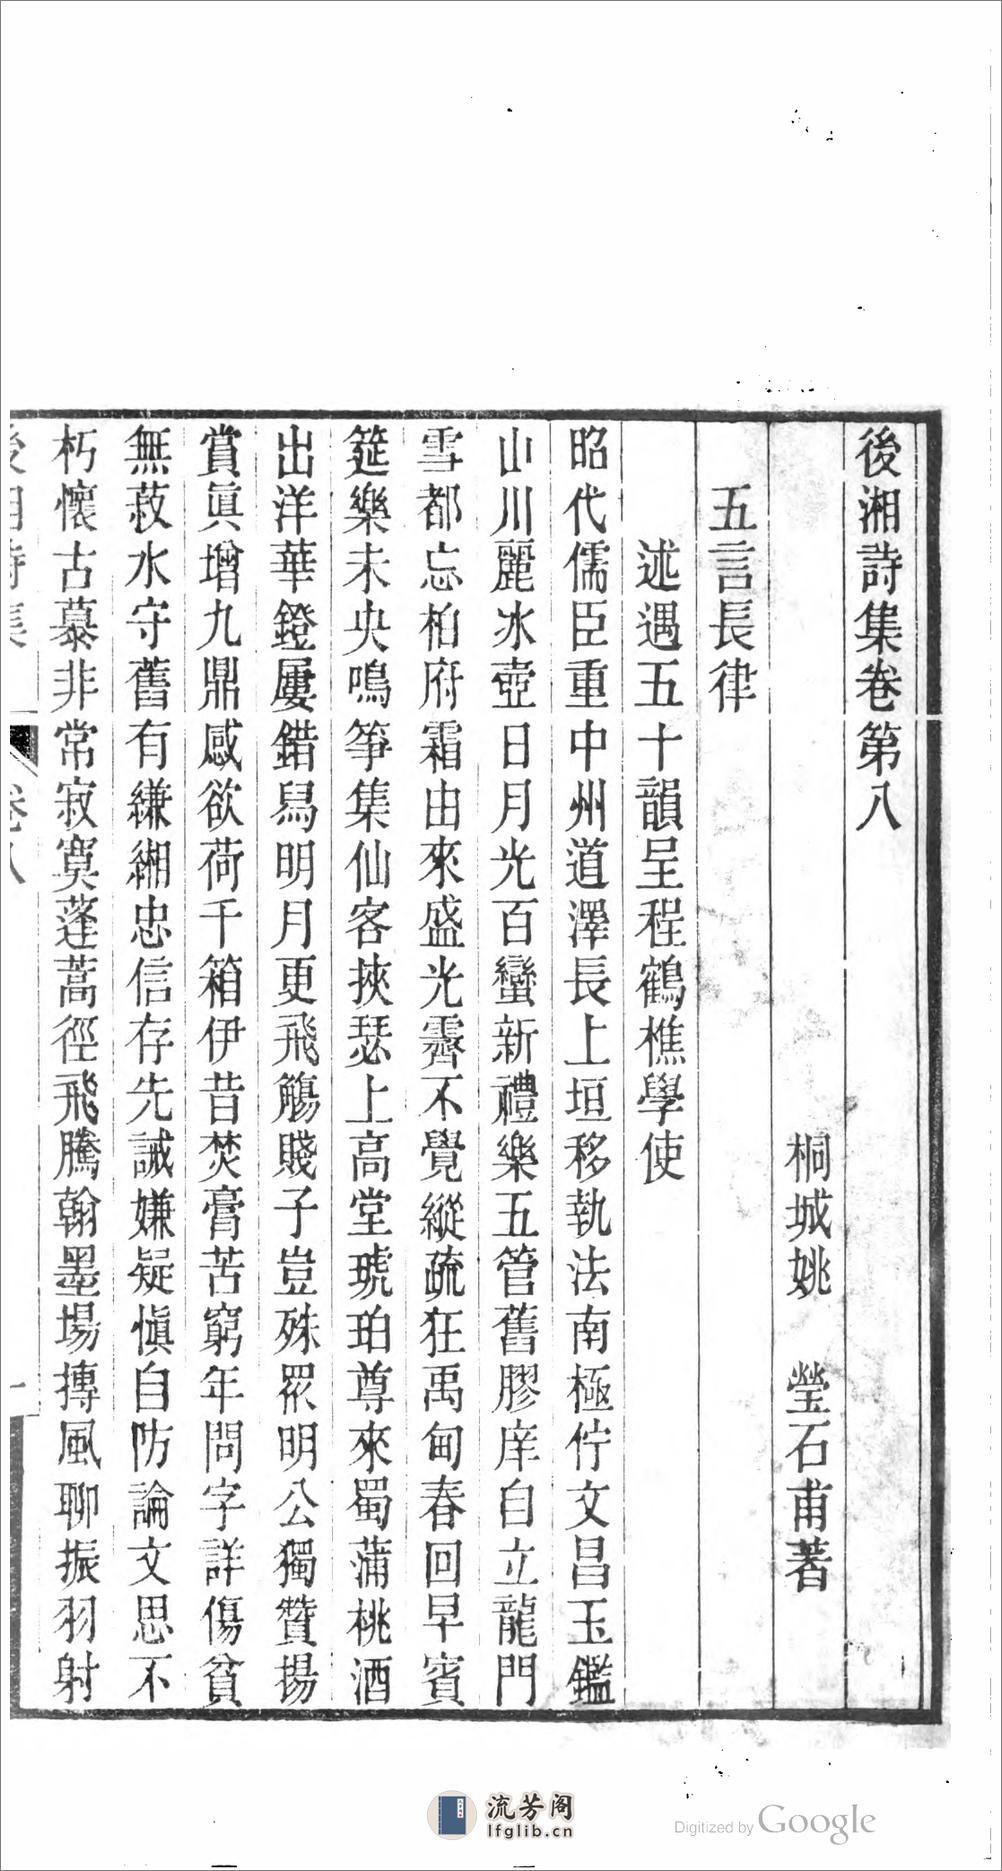 後湘詩集卷第八
桐城姚　瑩石甫著
五言長律
述遇五十韻呈程鶴樵學使
昭代儒臣重中州道澤長上垣移執法南極佇文昌玉鑑
山川麗冰壺日月光百蠻新禮樂五管舊膠庠自立龍門
雪都忘柏府霜由來盛光霽不覺縱疏狂禹甸春回早賓
筵樂未央鳴箏集仙客挾瑟上高堂琥珀尊來蜀蒲桃酒
出洋華鐙屢錯舃明月更飛觴賤子豈殊眾明公獨贊揚
賞眞增九鼎感欲荷千箱伊昔焚膏苦窮年問字詳傷貧
無菽水守舊有縑緗忠信存先誡嫌疑愼自防論文思不
朽懷古慕非常寂寞蓬蒿徑飛騰翰墨場摶風聊振羽射
後湘詩集
卷八
一
流芳阁
lfglib.cn
Digitized by Google